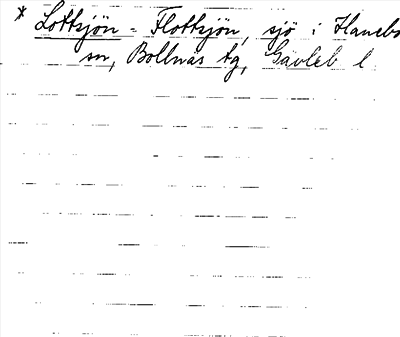 * Lottsjön = Flottsjön, sjö i Hanebo
sn, Bollnäs tg, Gävleb l